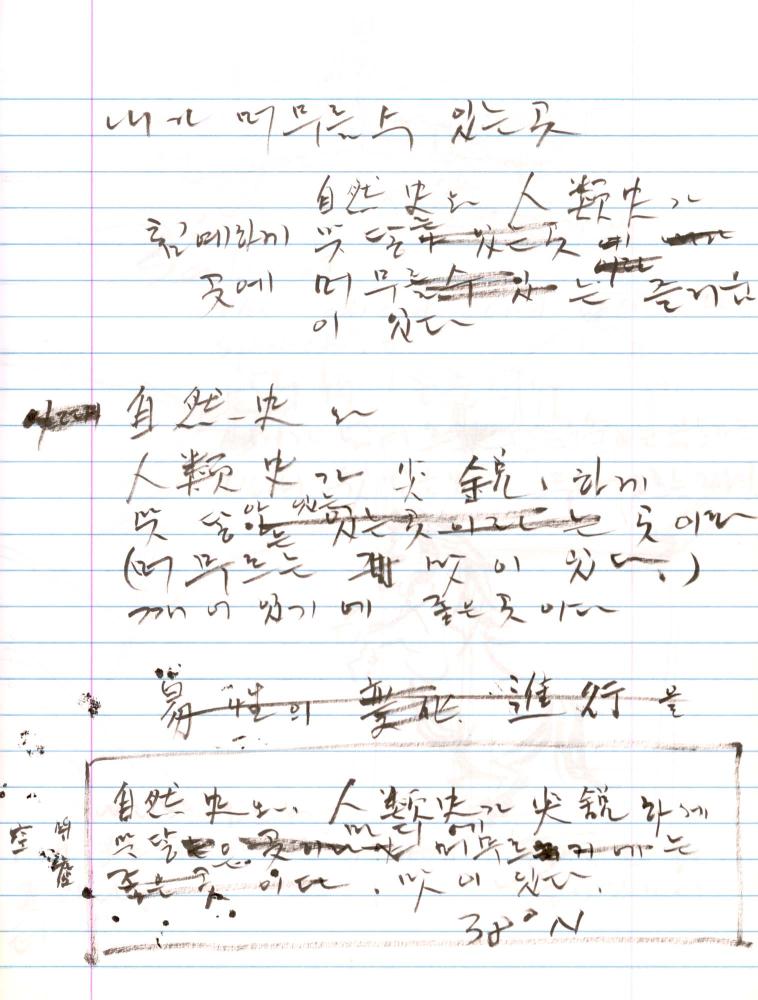 내가 머무를 수 있는 곳
自然史와 人類史가
첨예하게 뜻 닿는 있는 곳에
곳에 머무를 수 있는 즐거움
이 있다
自然史와
人類史가 尖鋭하게
뜻 닿 있는 곳이라는 곳이다
(머무르는 맛이 있다.)
깨어있기에 좋은 곳이다
易性의 変化 進行을
自然史와 人類史가 尖鋭하게
뜻 닿은 곳 마디에 머무르기에는
좋은 곳이다. 맛이 있다.
38°N